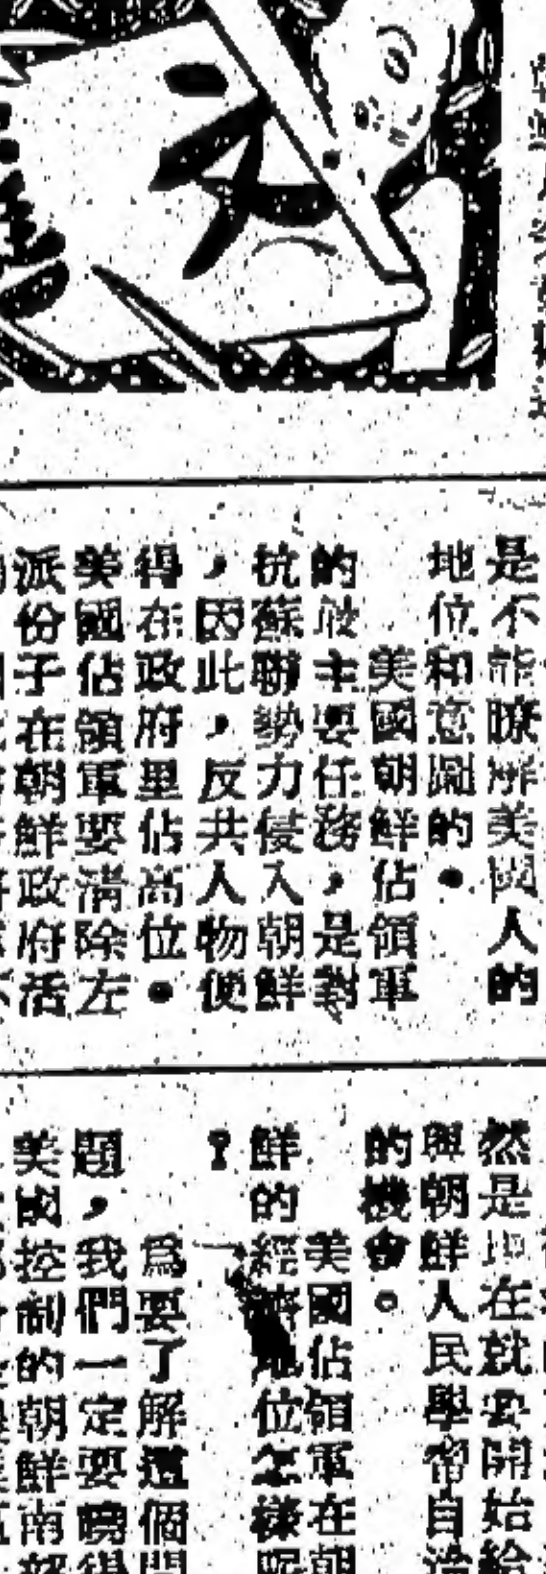 是不能瞭解美國人的
地位和意圖的。
美國朝鮮佔領軍
的最主要任務，是對
抗蘇聯勢力侵入朝鮮
，因此，反共人物便
得在政府里佔高位。
美國佔領軍要清除左
派份子在朝鮮政府活
然是現在就要開始給
與朝鮮人民學習自治
的機會。
美國佔領軍在朝
鮮的經濟地位怎樣呢
？
為要了解這個問
題，我們一定要曉得
美國控制的朝鮮南部